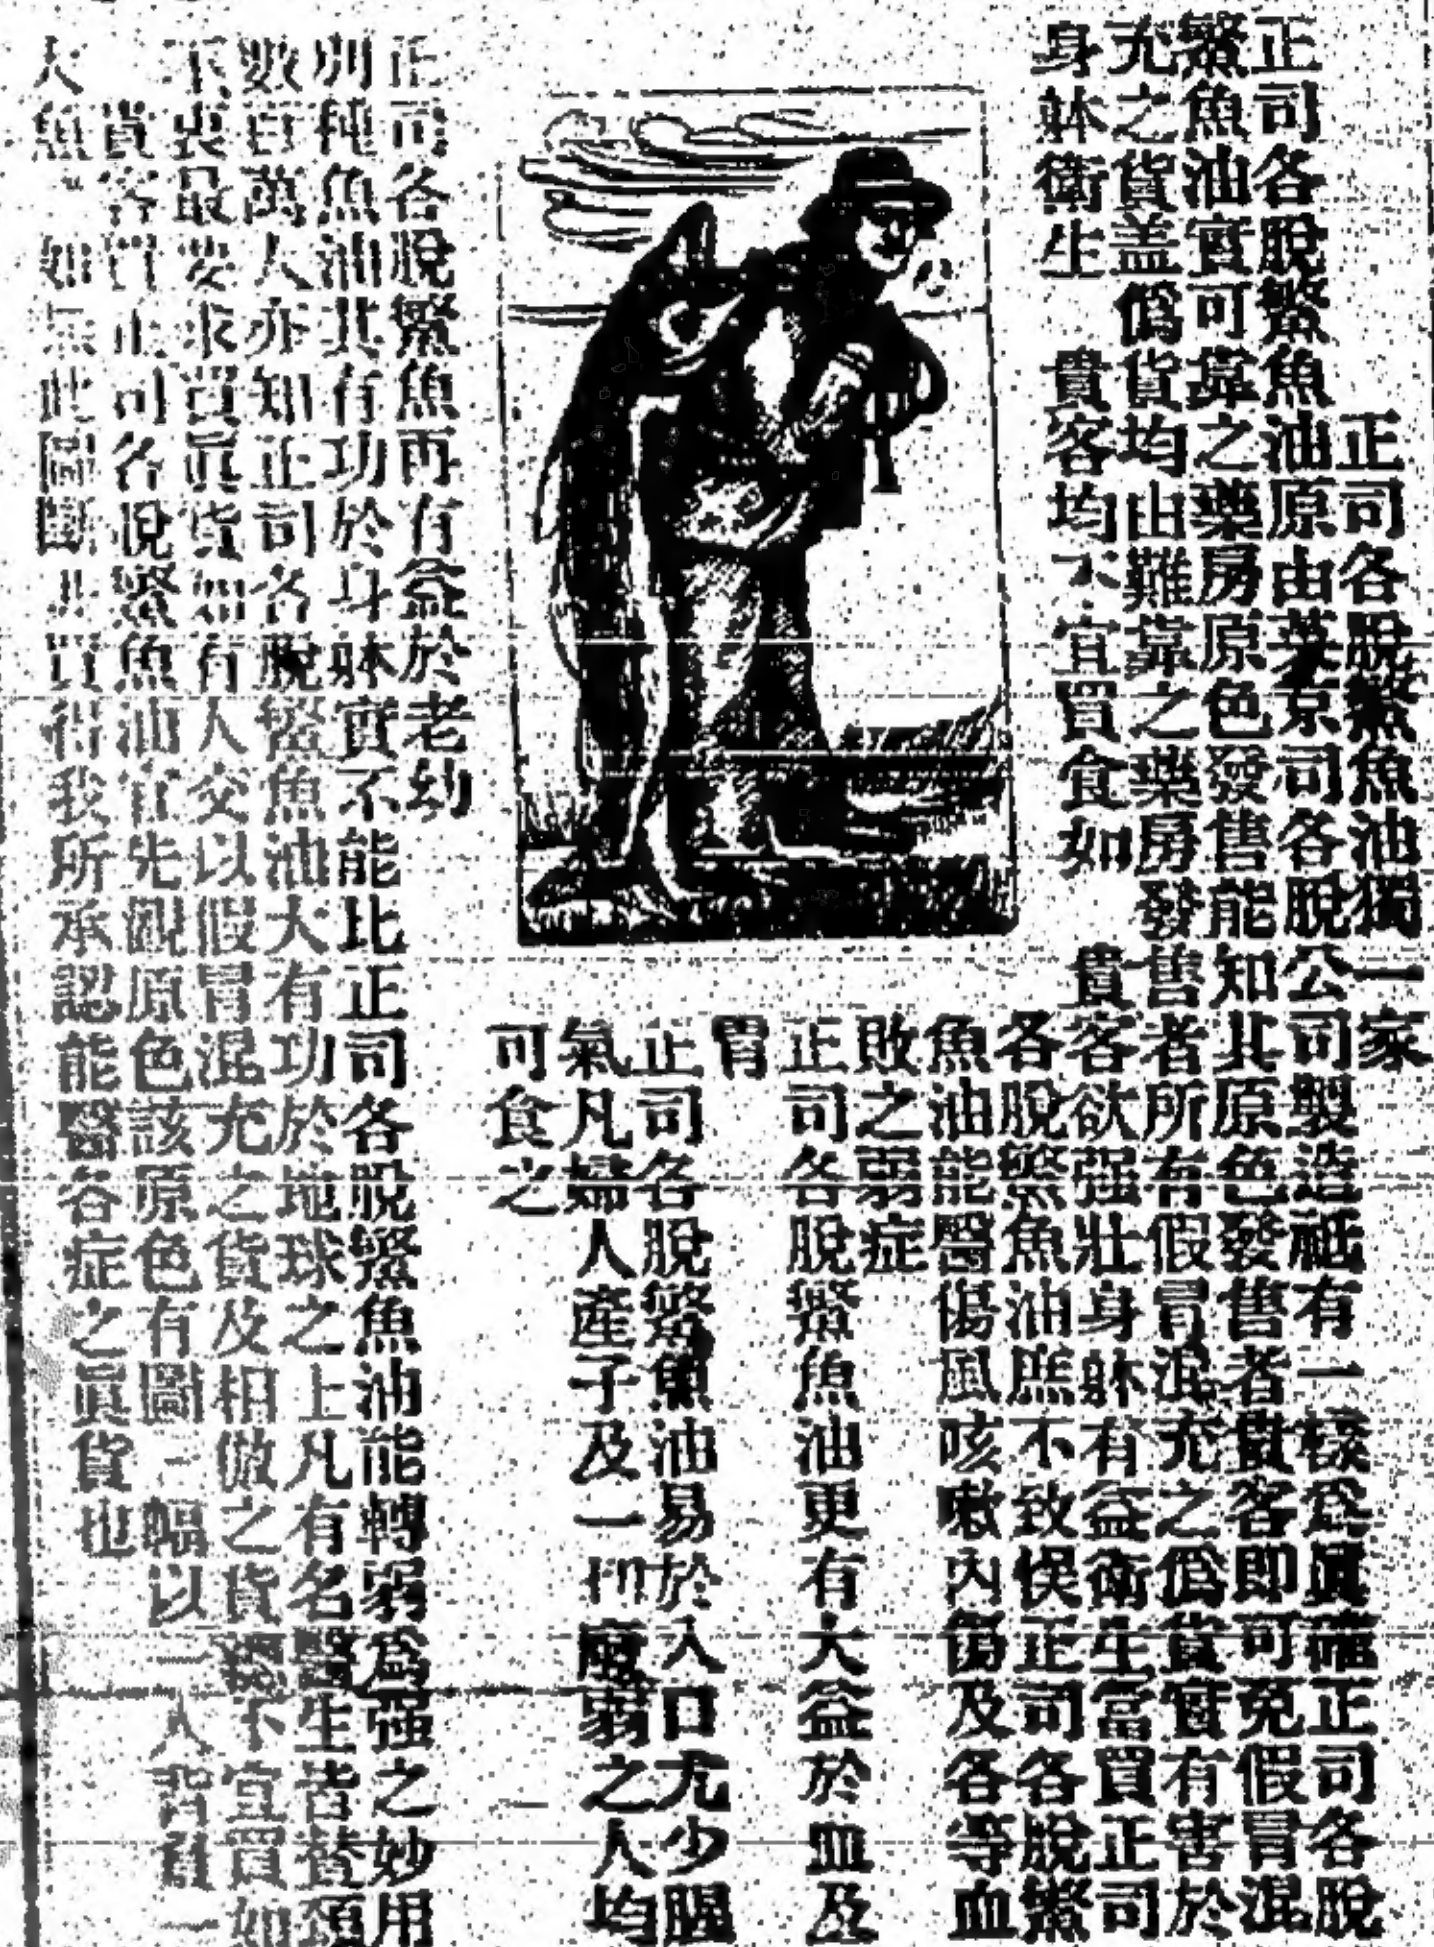 正司各脫鰵魚油獨一家
正司各脫鰵魚油原由英京司各脫公司製造祗有一樣為眞確正司各脫
鰵魚油實可靠之藥房原色發售能知其原色發售者貴客即可免假冒混
充之貨盖僞貨均由難靠之藥房發售者所有假冒混充之僞貨實有害於
身躰衛生 貴客均不宜買食如 貴客欲强壯身躰有益衛生當買正司
各脫鰵魚油庶不致悞正司各脫鰵
魚油能醫傷風咳嗽內傷及各等血
敗之弱症
正司各脫鰵魚油更有大益於血及
胃
正司各脫鰵魚油易於入口尤少腥
氣凡婦人產子及一切瘦弱之人均
可食之
正司各脫鰵魚再有益於老幼
別種魚油其有功於身躰實不能比正司各脫鰵魚油能轉弱爲强之妙用
數百萬人亦知正司各脫鰵魚油大有功於地球之上凡有名醫生皆贊頌
不 最要求買眞貨如有人交以假冒混充之貨及相倣之貨 不宜買如
貴客買正司各脫鰵魚油宜先觀原色該原色有圖一幅以一人背負一
大魚 如無此圖斷非買得我所承認能醫各症之眞貨也